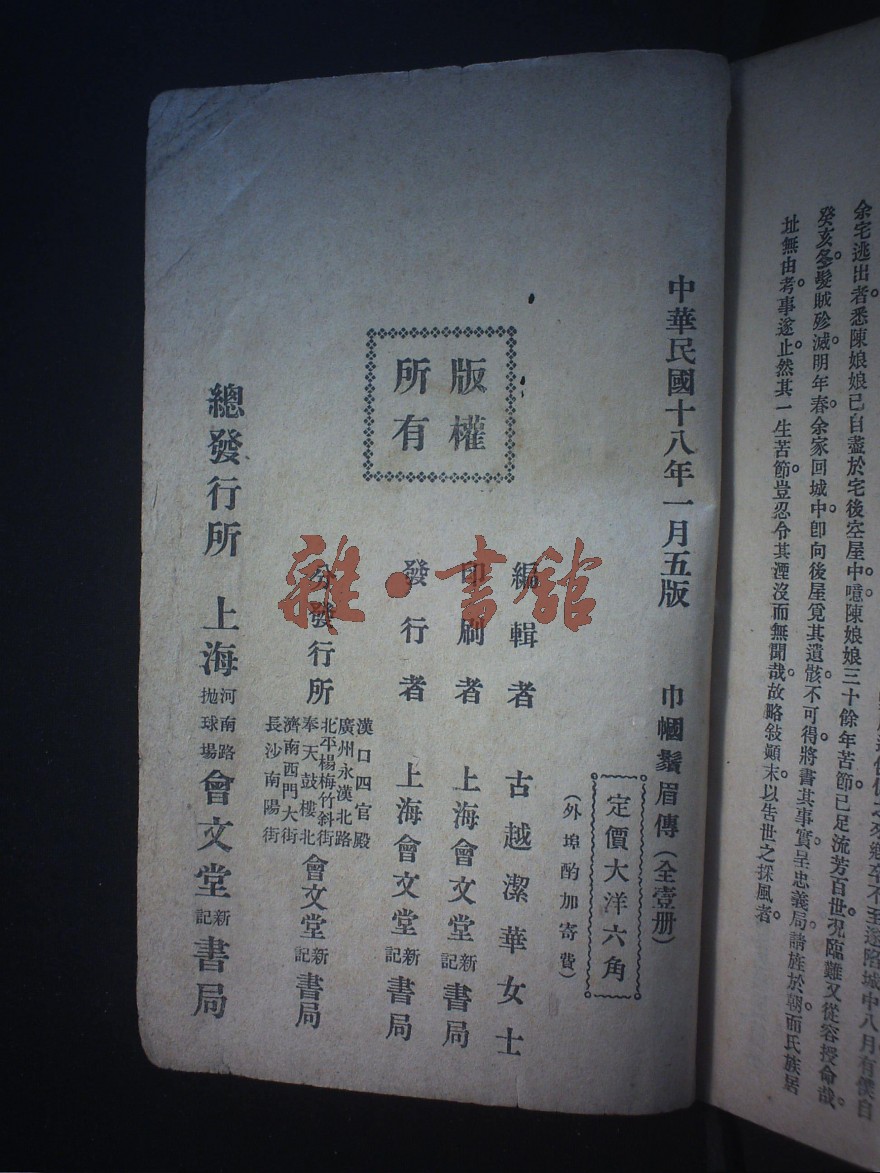 余宅逃出者悉陳娘娘已自盡於宅後空屋中噫陳娘娘三十餘年苦節已足流芳百世況臨難又從容授命哉。
癸亥冬髮賊殄滅明年春余家回城中卽向後屋覓其遺骸不可得將書其事實呈忠義局請旌於朝而氏族居
址無由考事遂止然其一生苦節豈忍令其湮沒而無聞哉故略敍顛末以告世之採風者。
中華民國十八年一月五版
巾幗鬚眉傳(全壹册)
定價大洋六角
(外埠酌加寄費)
版權
所有
編輯者 古越潔華女士
印刷者 上海會文堂新記書局
發行者 上海會文堂新記書局
分發行所
漢口四官殿
廣州永漢北路
北平楊梅竹斜街
奉天鼓樓北
濟南西門大街
長沙南陽街
會文堂新記書局
總發行所 上海河南路拋球場會文堂新記書局
雜·書館